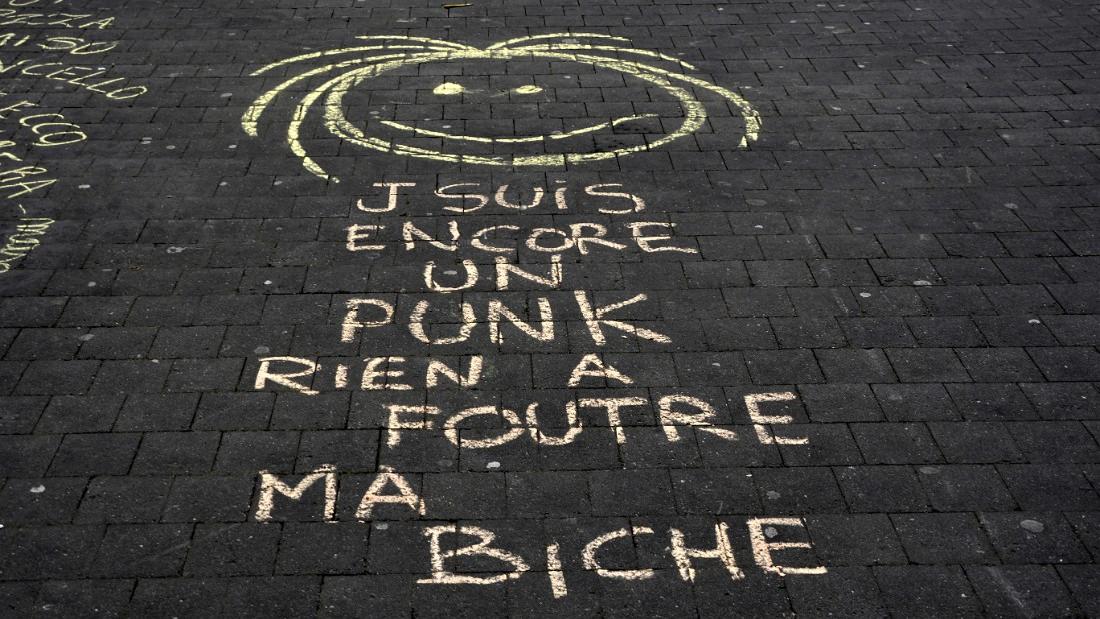 AI SU
NCELLO
ECCO
J SUiS
ENCORE
UN
PUNK
RiEN A
FOUTRE
MA
BICHE